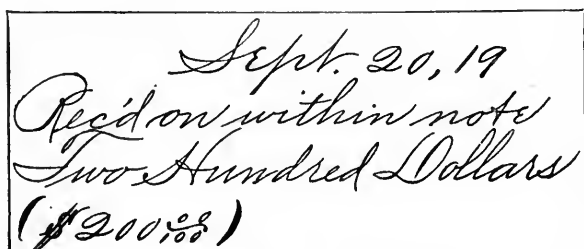 Sept. 20, 19
Rec'd on within note
Two Hundred Dollars
($200 00/100)